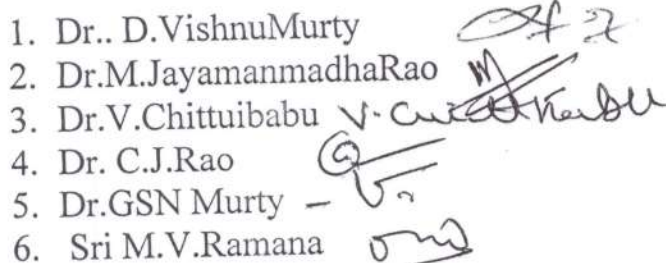 1. Dr.. D.VishnuMurty
2. Dr.M.JayamanmadhaRao
3. Dr.V.Chittuibabu V. Chittibabu
4. Dr. C.J.Rao
5. Dr.GSN Murty -
6. Sri M.V.Ramana